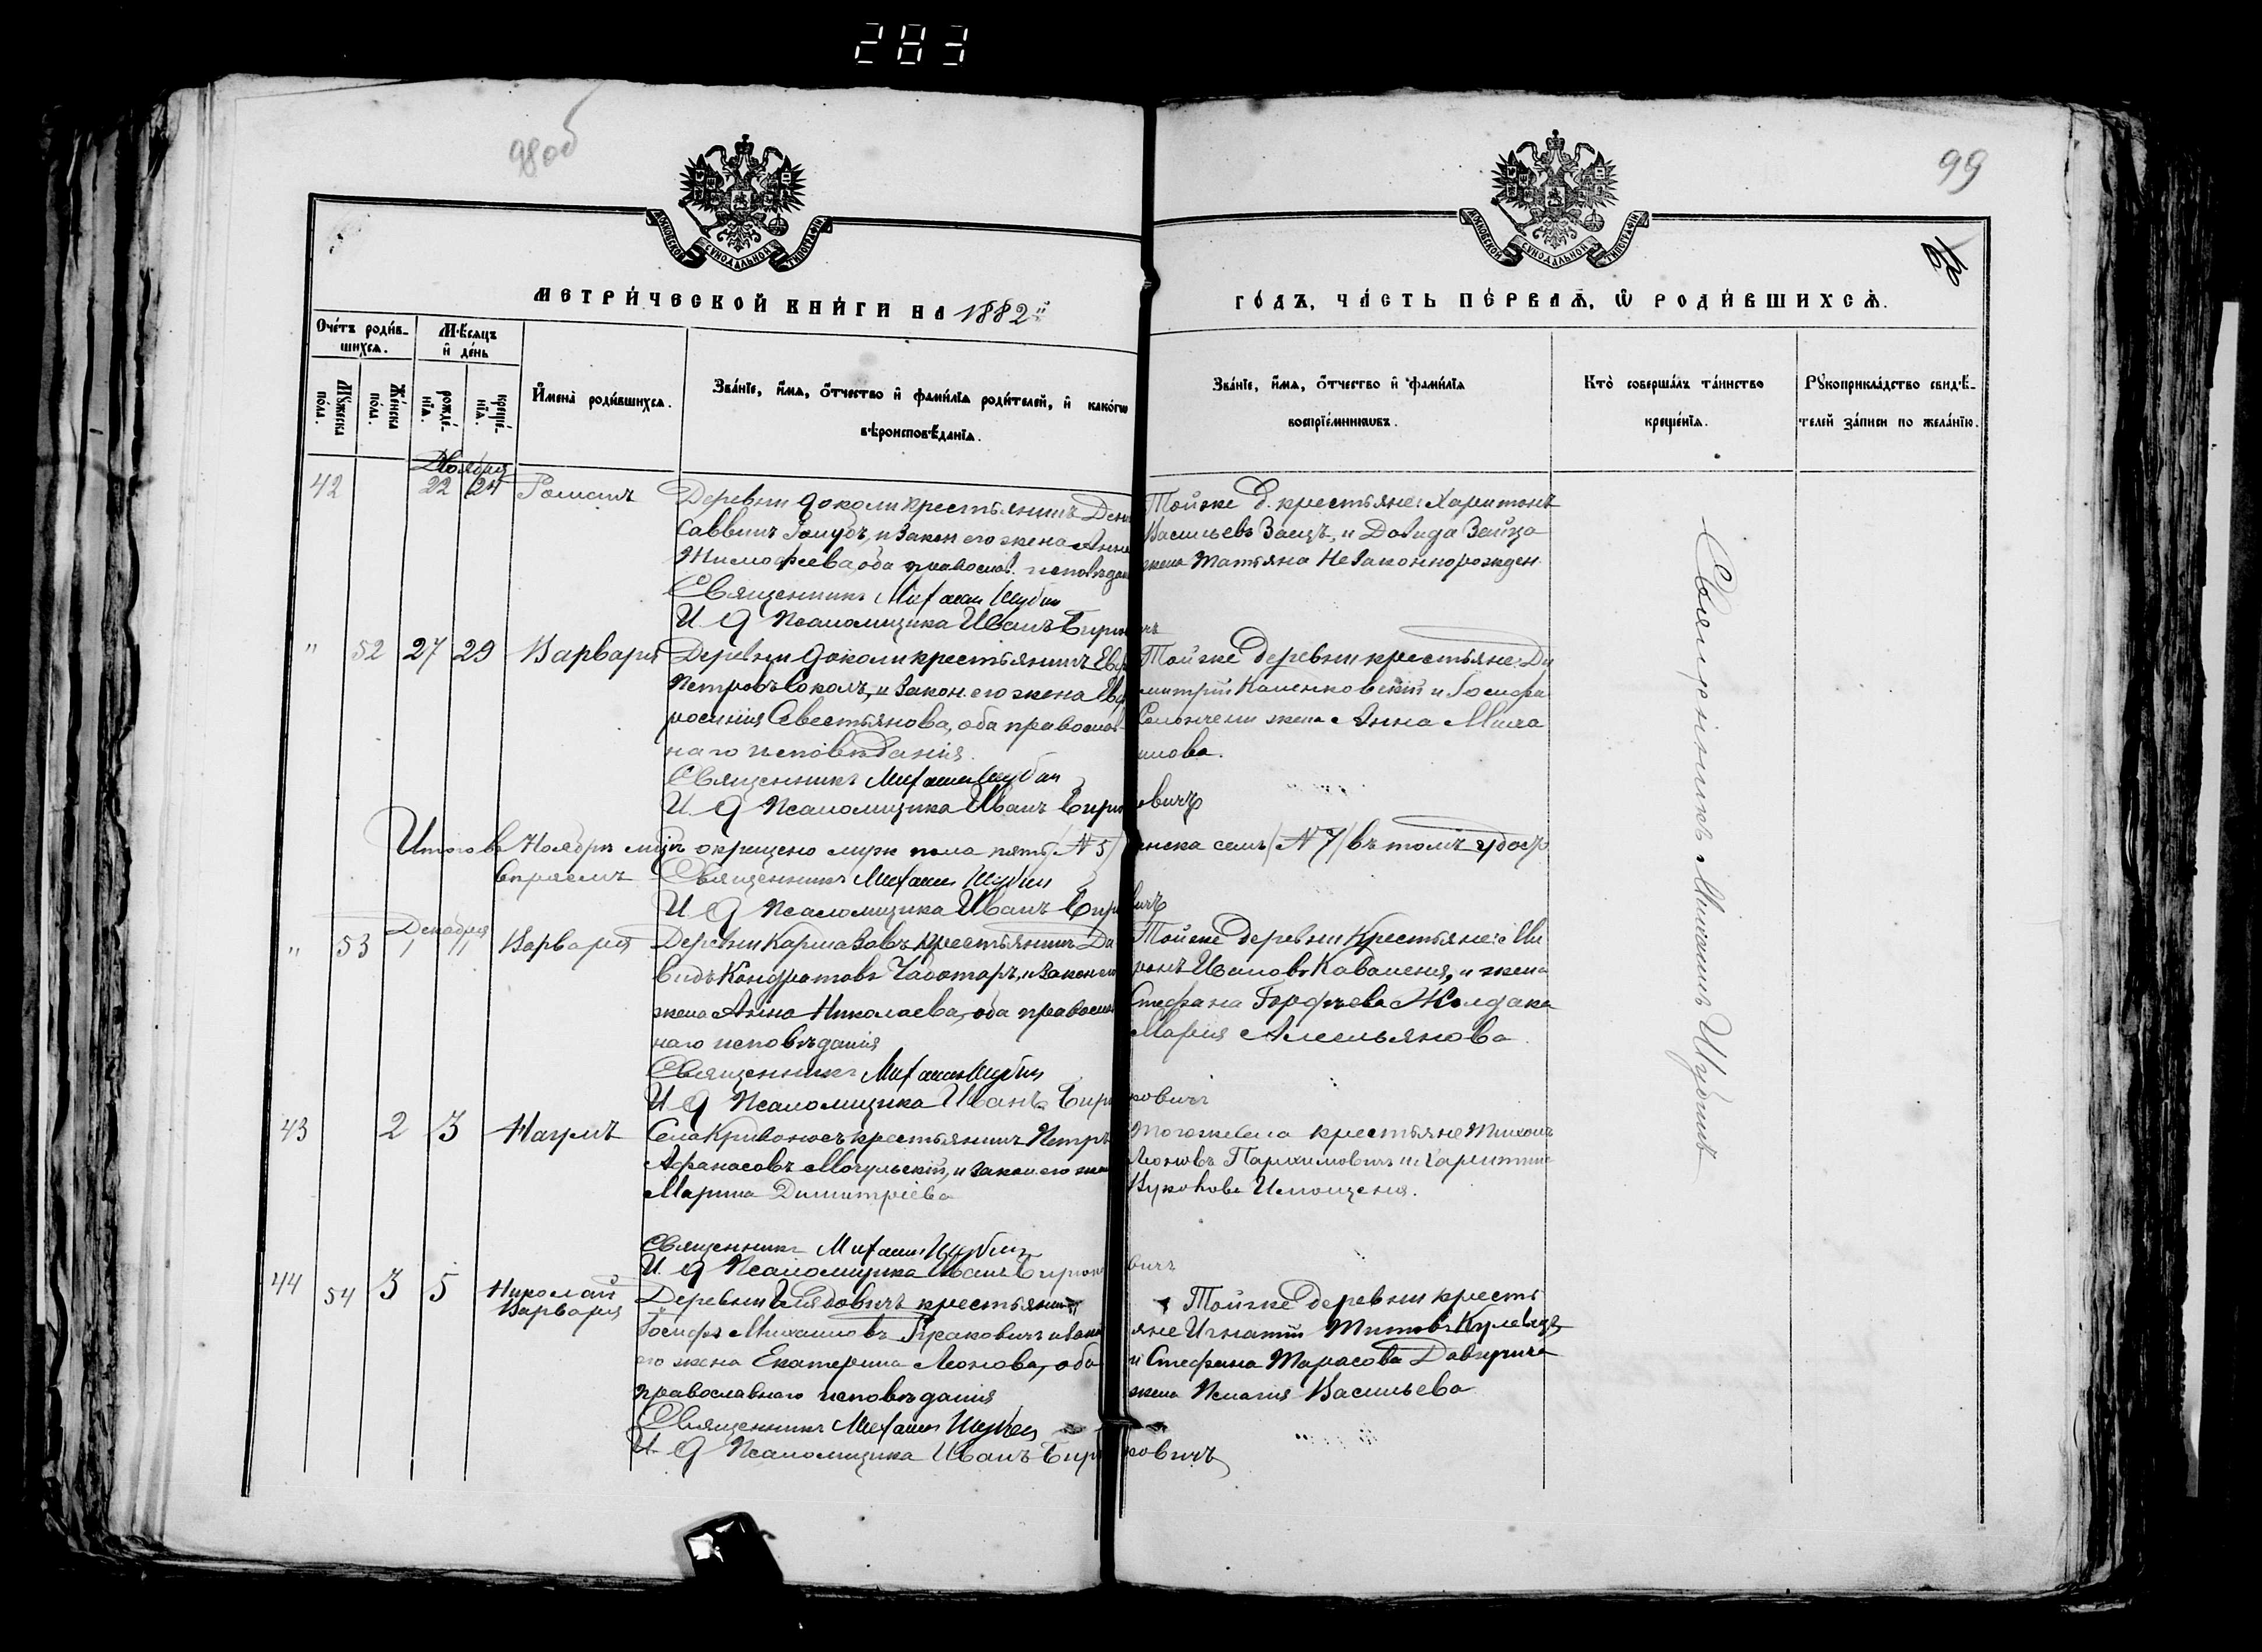 283
98об
99
МЕТРИ́ЧЕСКОЙ КНИ́ГИ НА 1882й
ГО́ДЪ, ЧА́СТЬ ПЕ́РВАѦ, Ѡ РОДИ́ВШИХСѦ.
Сче́тъ роди́в-
шихсѧ.
Мꙋ́жеска по́ла.
Же́нска по́ла.
Мѣ́сѧцъ и де́нь
рожде́-
нїѧ.
креще́-
нїѧ.
Имена̀ роди́вшихсѧ.
Зва́нїе, и́мѧ, о́тчество и фами́лїѧ роди́телей, и како́гѡ
вѣроисповѣ́данїѧ.
Зва́нїе, и́мѧ, о́тчество и фами́лїѧ
воспрїе́мникѡвъ.
Кто̀ соверша́лъ та́инство
креще́нїѧ.
Рꙋкоприкла́дство свидѣ́-
телей за́писи по жела́нїю.
Ноября
42 22 24 Романъ
Деревни Доколи крестьянинъ
Саввинъ Голубъ, и закон его жена Анна
Тимофеева, оба правосл. исповѣдан
Священникъ Михаилъ Шубин
И. Д Псаломщика Иванъ
Тойже д. крестьяне: Харитонъ
Васильевъ Заецъ, и Давида Зайца
жена Татьяна Незаконнорожден.
" 52 27 29 Варвара
Деревни Доколи крестьянинъ
Петровъ Соколъ, и закон. его жена
росиния Севестьянова, оба правослов
наго исповѣдания.
Священникъ Михаилъ Шубин
И. Д Псаломщика Иванъ
Тойже деревни крестьяне: Ди
митрій Каменковский и Іосифа
жена Анна
илова.
Итого въ Ноябрѣ мцѣ окрещено муж пола пять (N 5) женска семь (N 7) въ томъ удос
вѣряемъ Священникъ Михаилъ Шубин
И Д Псаломщика Иванъ
Декабря
" 53 1 11 Варвара
Деревни Кармазовъ крестьянинъ Да
видъ Кондратовъ Чаботаръ, и закон его
жена Анна Николаева, оба правосл
наго исповѣдания
Священникъ Михаилъ Шубин
И Д Псаломщика Иванъ
Тойже деревни крестьяне:
Ивановъ Каваленя, и жена
Стефана Жолдака
Мария Амельянова.
43 2 3 Наумъ
Села Кривоносъ крестьянинъ Петръ
Афанасовъ Мочульскій, и закон его жена
Марина Димитріева
Священникъ Михаилъ Шубин
И. Д Псаломщика Иванъ
Тогоже села крестьяне Тихонъ
Леоновъ Пархимовичъ и Харитина
44 54 3 5 Николай
Варвара
Деревни крестьянинъ
Іосифъ Михаиловъ и закон
его жена Екатерина Леонова, оба
православнаго исповѣдания
Священникъ Михаилъ Шубин
И. Д Псаломщика Иванъ
Тойже деревни кресть
яне Игнатій Титовъ
и Стефана Тарасова
жена Васильева
Священникъ Михаилъ Шубинъ